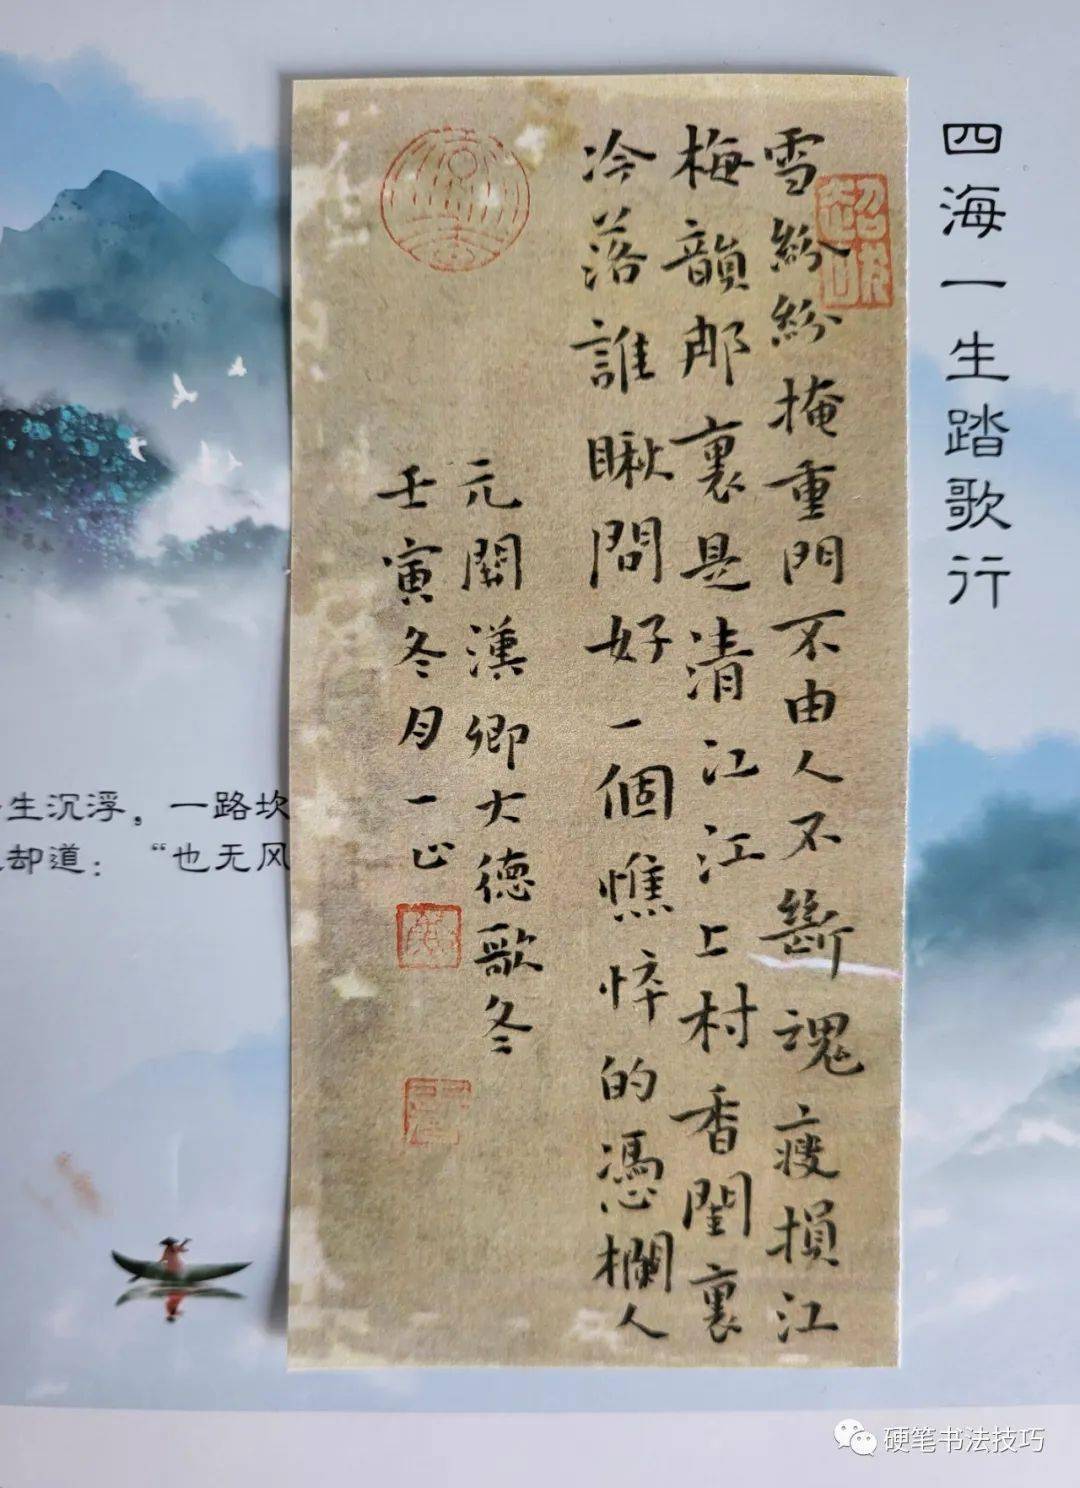 四海一生踏歌行
雪紛紛掩重門不由人不斷魂瘦損江
梅韻那裏是清江江上村香閨裏
冷落誰瞅問好一個憔悴的憑欄人
元關漢卿大德歌冬
壬寅冬月一正
生沉浮，一路坎
却道：“也无风
硬笔书法技巧